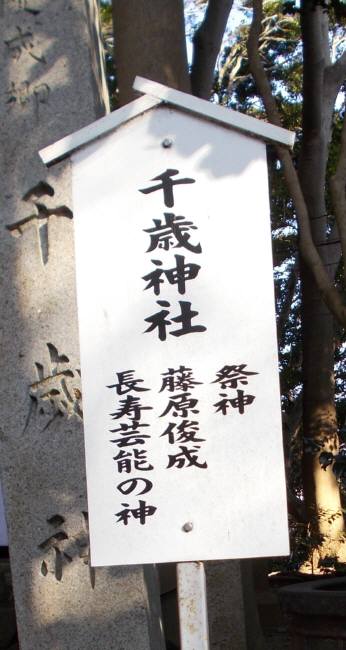 千歳神社
祭神
藤原俊成
長寿芸能の神
成卿
千歳神